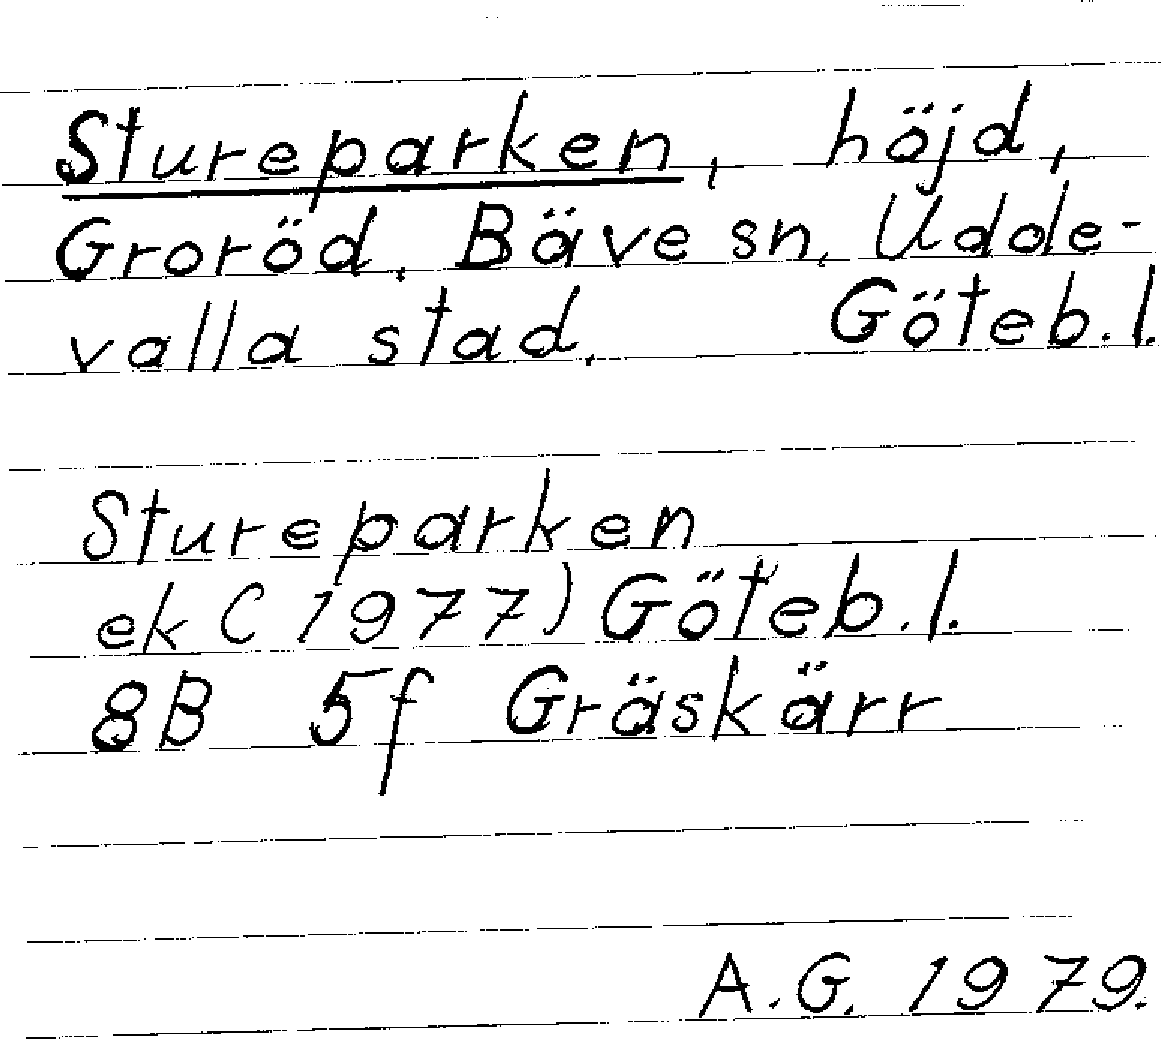 Stureparken, höjd,
Groröd, Bäve sn, Udde-
valla stad. Göteb. l.
Stureparken
ek (1977) Göteb. l.
8B 5f Gräskärr
A. G. 1979.